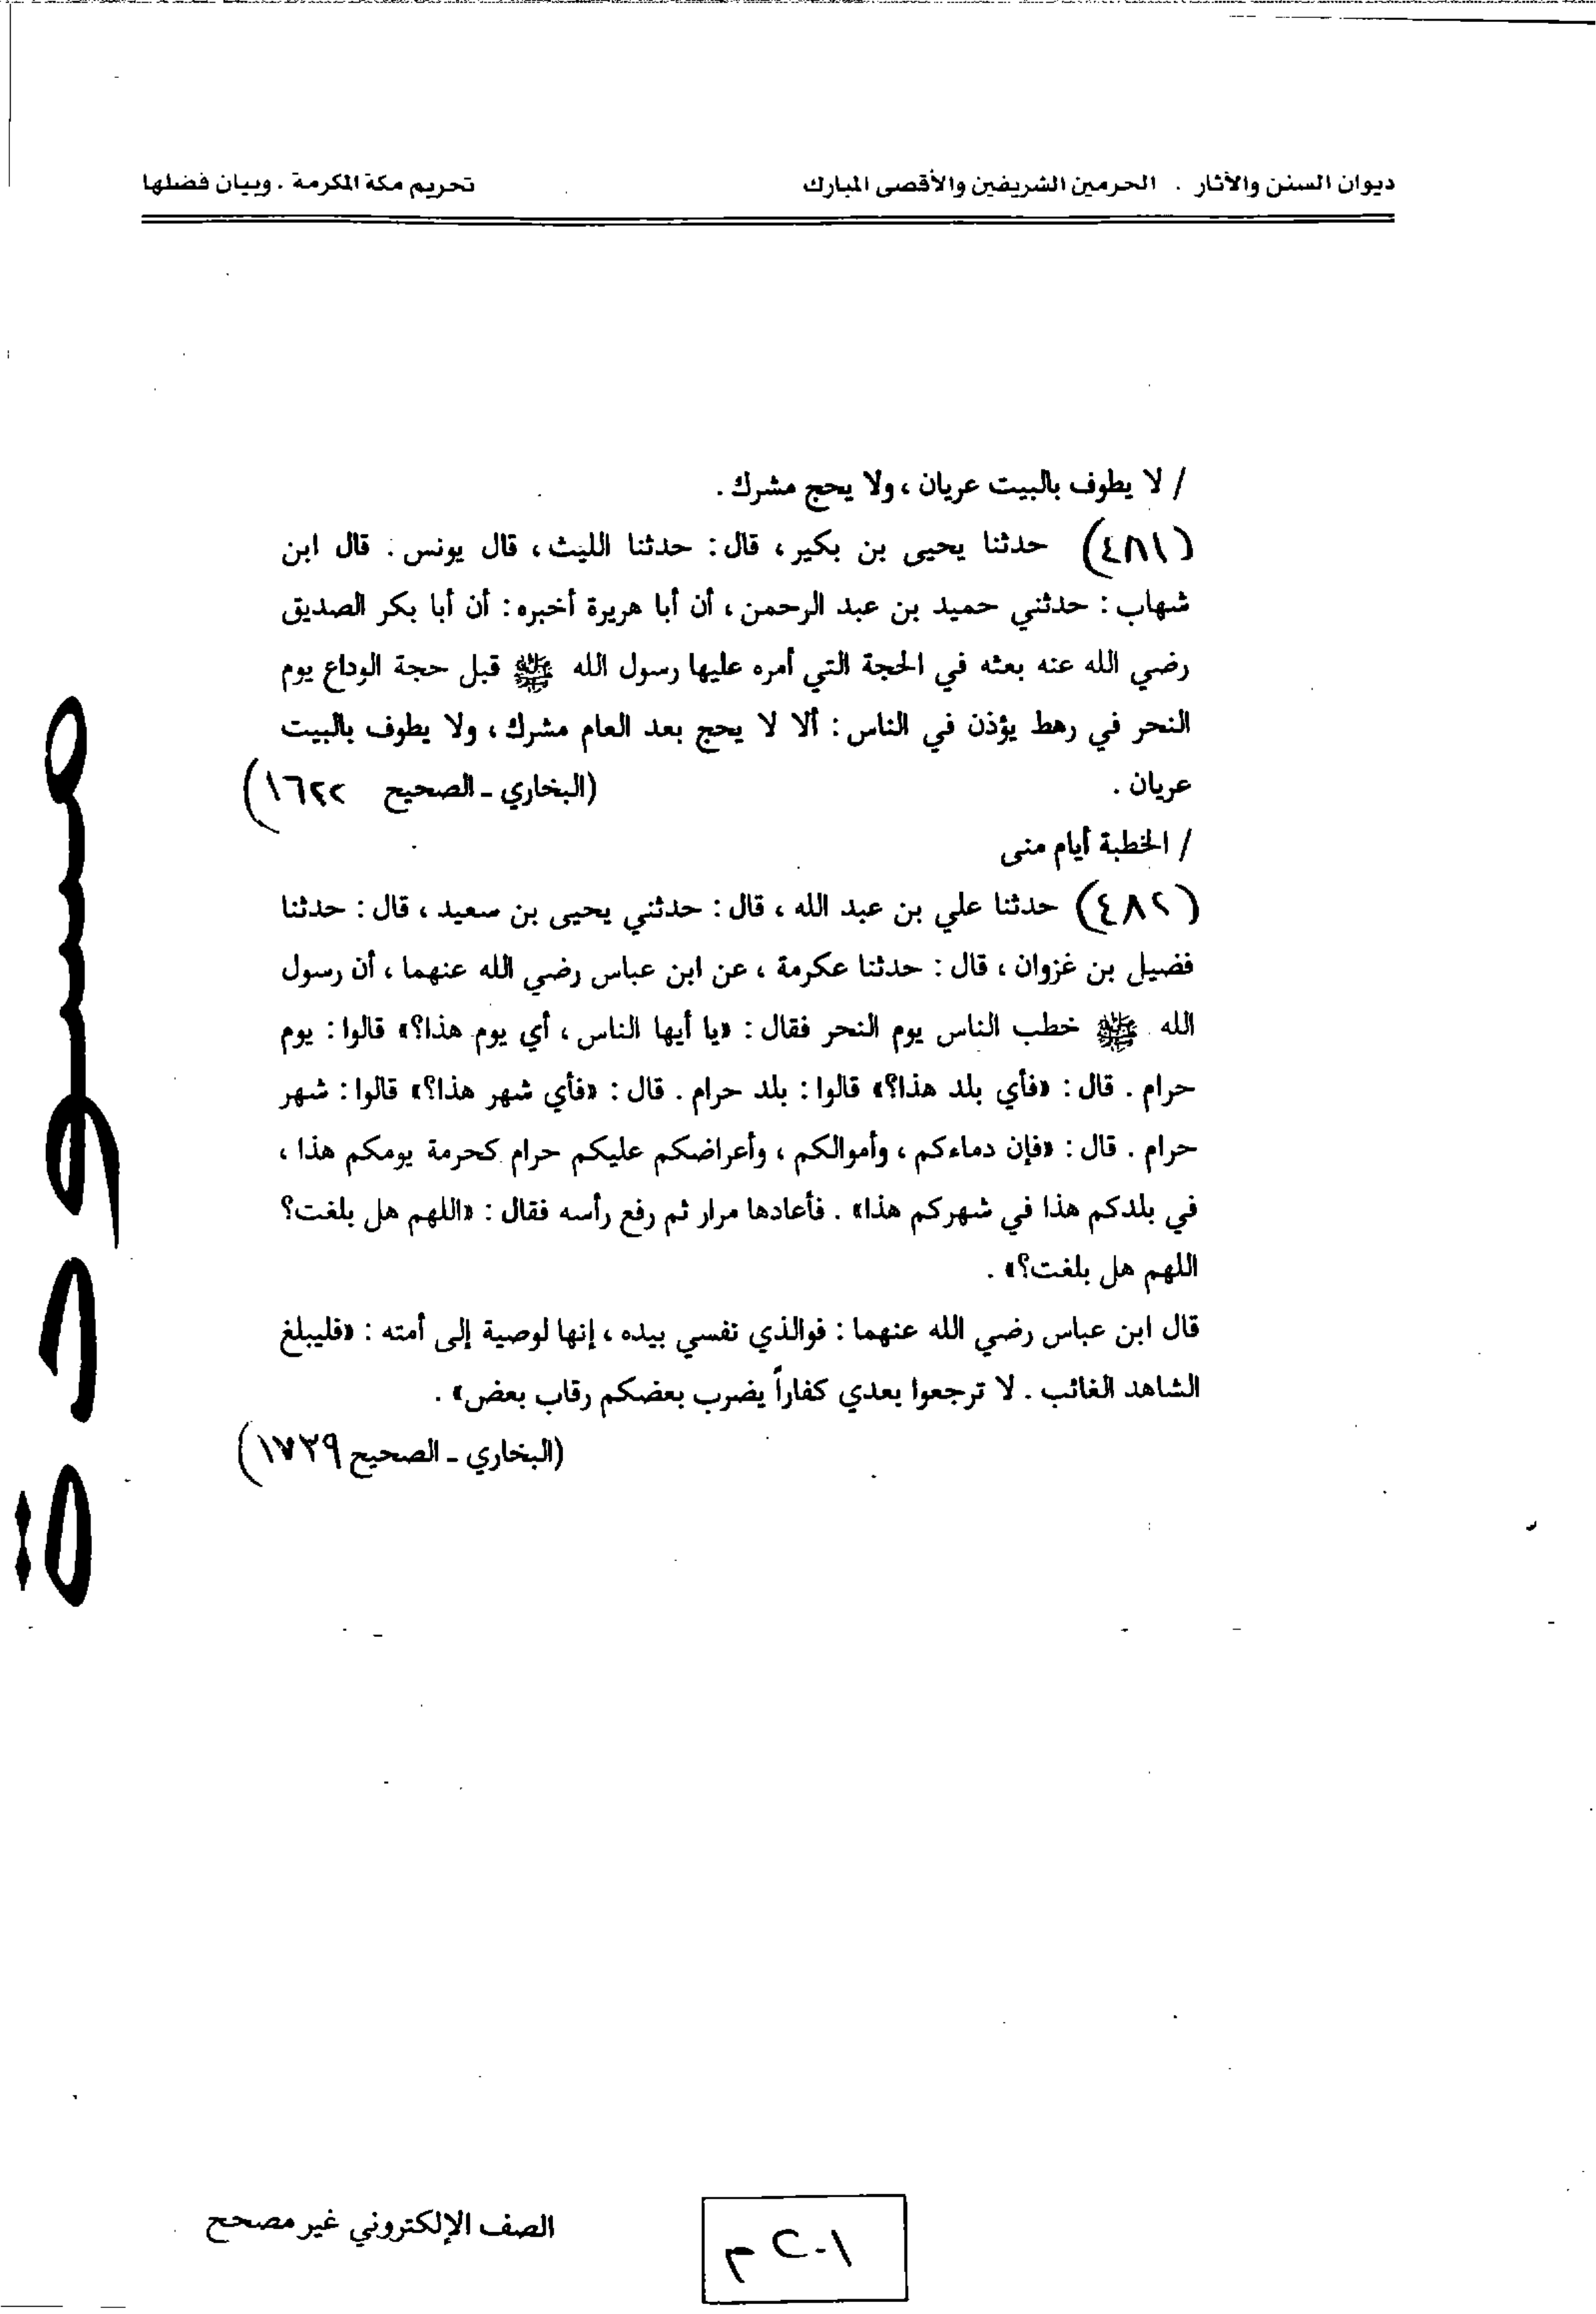 ديوان السنن والآثار . الحرمين الشريفين والأقصى المبارك تحريم مكة المكرمة . وبيان فضلها
/ لا يطوف بالبيت عريان ، ولا يحج مشرك .
(٤٨١) حدثنا يحيى بن بكير ، قال : حدثنا الليث ، قال يونس : قال ابن
شهاب : حدثني حميد بن عبد الرحمن ، أن أبا هريرة أخبره : أن أبا بكر الصديق
رضي الله عنه بعثه في الحجة التي أمره عليها رسول الله ﷺ قبل حجة الوداع يوم
النحر في رهط يؤذن في الناس : ألا لا يحج بعد العام مشرك ، ولا يطوف بالبيت
عريان . (البخاري ـ الصحيح ١٦٢٢)
/ الخطبة أيام منى
(٤٨٢) حدثنا علي بن عبد الله ، قال : حدثني يحيى بن سعيد ، قال : حدثنا
فضيل بن غزوان ، قال : حدثنا عكرمة ، عن ابن عباس رضي الله عنهما ، أن رسول
الله ﷺ خطب الناس يوم النحر فقال : «يا أيها الناس ، أي يوم هذا؟» قالوا : يوم
حرام . قال : «فأي بلد هذا؟» قالوا : بلد حرام . قال : «فأي شهر هذا؟» قالوا : شهر
حرام . قال : «فإن دماءكم ، وأموالكم ، وأعراضكم عليكم حرام كحرمة يومكم هذا ،
في بلدكم هذا في شهركم هذا» . فأعادها مرار ثم رفع رأسه فقال : «اللهم هل بلغت؟
اللهم هل بلغت؟» .
قال ابن عباس رضي الله عنهما : فوالذي نفسي بيده ، إنها لوصية إلى أمته : «فليبلغ
الشاهد الغائب . لا ترجعوا بعدي كفاراً يضرب بعضكم رقاب بعض» .
(البخاري ـ الصحيح ١٧٣٩)
مسودة
الصف الإلكتروني غير مصحح
٢٠١ م